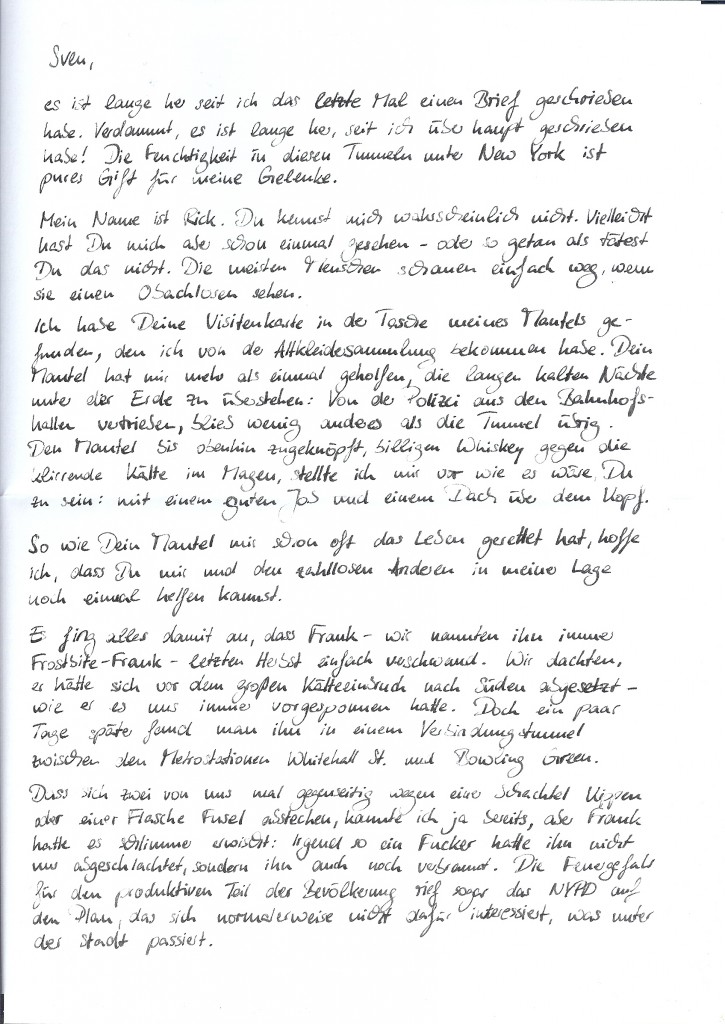 Sven,
es ist lange her seit ich das letzte Mal einen Brief geschrieben
habe. Verdammt, es ist lange her, seit ich überhaupt geschrieben
habe! Die Feuchtigkeit in diesen Tunneln unter New York ist
pures Gift für meine Gelenke.
Mein Name ist Rick. Du kennst mich wahrscheinlich nicht. Vielleicht
hast Du mich aber schon einmal gesehen - oder so getan als tätest
Du das nicht. Die meisten Menschen schauen einfach weg, wenn
sie einen Obachlosen sehen.
Ich habe Deine Visitenkarte in der Tasche meines Mantels ge-
funden, den ich von der Altkleidersammlung bekommen habe. Dein
Mantel hat mir mehr als einmal geholfen, die langen kalten Nächte
unter der Erde zu überstehen: Von der Polizei aus den Bahnhofs-
hallen vertrieben, blieb wenig anderes als die Tunnel übrig.
Den Mantel bis obenhin zugeknöpft, billigen Whiskey gegen die
klirrende Kälte im Magen, stellte ich mir vor wie es wäre, Du
zu sein: mit einem guten Job und einem Dach über dem Kopf.
So wie Dein Mantel mir schon oft das Leben gerettet hat, hoffe
ich, dass Du mir und den zahllosen Anderen in meiner Lage
noch einmal helfen kannst.
Es fing alles damit an, dass Frank - wir nannten ihn immer
Frostbite-Frank - letzten Herbst einfach verschwand. Wir dachten,
er hätte sich vor dem großen Kälteeinbruch nach Süden abgesetzt -
wie er es uns immer vorgesponnen hatte. Doch ein paar
Tage später fand man ihn in einem Verbindungstunnel
zwischen den Metrostationen Whitehall St. und Bowling Green.
Dass sich zwei von uns mal gegenseitig wegen einer Schachtel Kippen
oder einer Flasche Fusel abstechen, kannte ich ja bereits, aber Frank
hatte es schlimmer erwischt: Irgend so ein Fucker hatte ihn nicht
nur abgeschlachtet, sondern ihn auch noch verbrannt. Die Feuergefahr
für den produktiven Teil der Bevölkerung rief sogar das NYPD auf
den Plan, das sich normalerweise nicht dafür interessiert, was unter
der Stadt passiert.